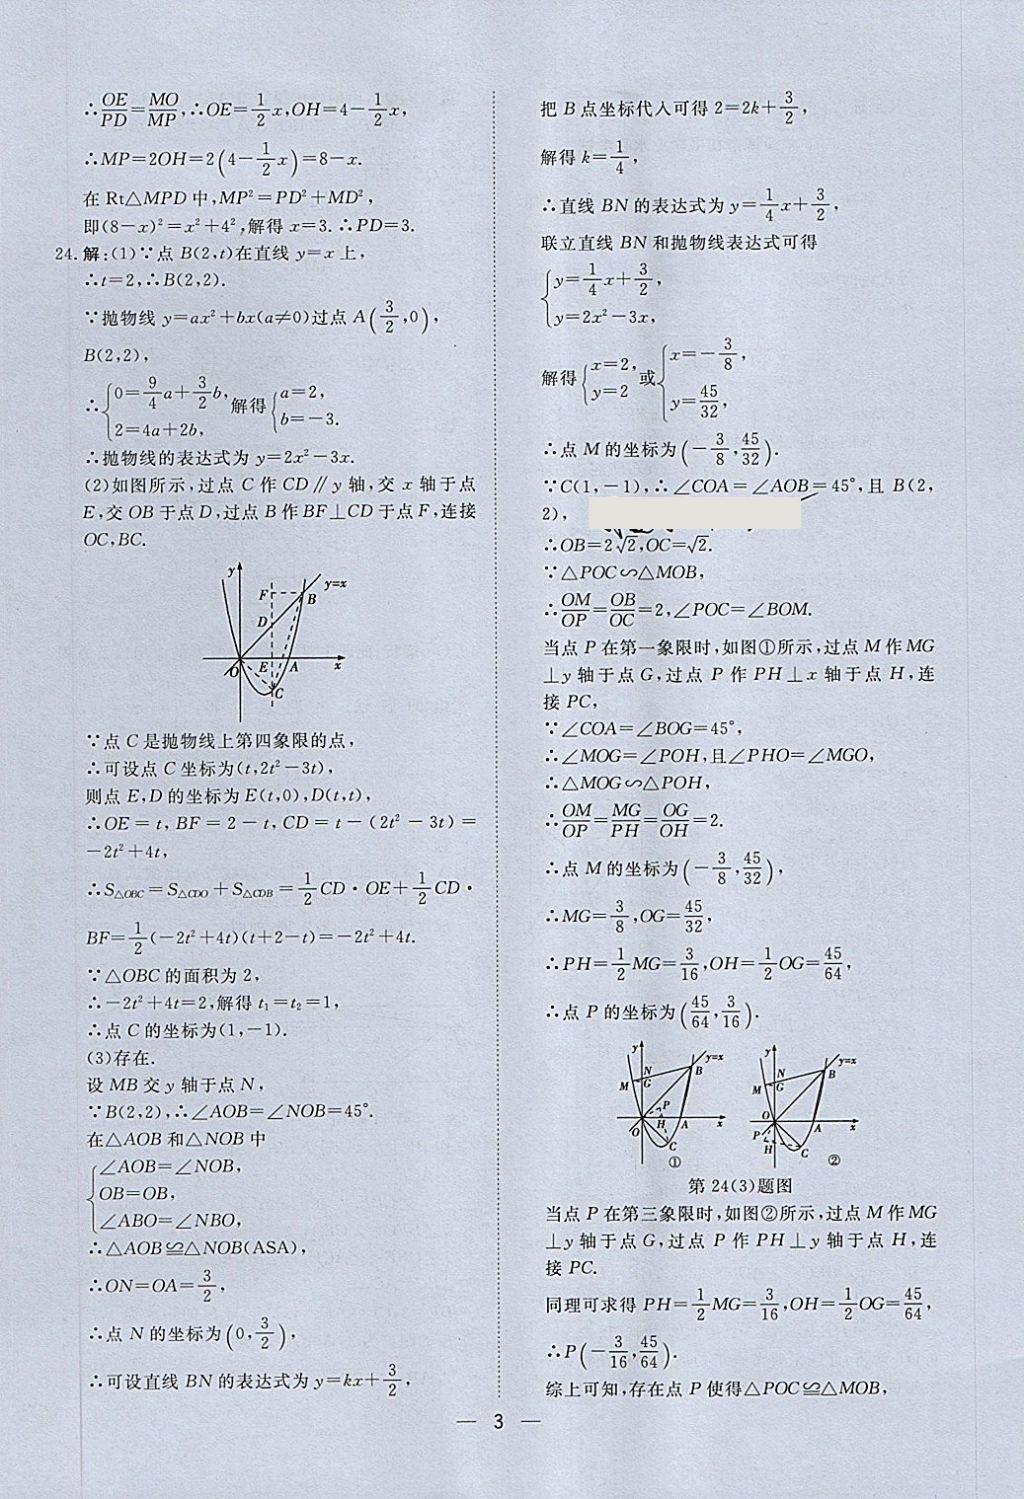 ∴OE/PD=MO/MP,∴OE=1/2x,OH=4-1/2x,
∴MP=2OH=2(4-1/2x)=8-x.
在 Rt△MPD 中,MP²=PD²+MD²,
即(8-x)²=x²+4²,解得 x=3.∴PD=3.
24.解:(1)∵点 B(2,t)在直线 y=x 上,
∴t=2,∴B(2,2).
∵抛物线 y=ax²+bx(a≠0)过点 A(3/2,0),
B(2,2),
∴{0=9/4a+3/2b, 2=4a+2b, 解得{a=2, b=-3.
∴抛物线的表达式为 y=2x²-3x.
(2)如图所示,过点 C 作 CD∥y 轴,交 x 轴于点
E,交 OB 于点 D,过点 B 作 BF⊥CD 于点 F,连接
OC,BC.
y
y=x
F
B
D
O
E
A
x
C
∵点 C 是抛物线上第四象限的点,
∴可设点 C 坐标为(t,2t²-3t),
则点 E,D 的坐标为 E(t,0),D(t,t),
∴OE=t,BF=2-t,CD=t-(2t²-3t)=
-2t²+4t,
∴S△OBC=S△CDO+S△CDB=1/2CD·OE+1/2CD·
BF=1/2(-2t²+4t)(t+2-t)=-2t²+4t.
∵△OBC 的面积为 2,
∴-2t²+4t=2,解得 t₁=t₂=1,
∴点 C 的坐标为(1,-1).
(3)存在.
设 MB 交 y 轴于点 N,
∵B(2,2),∴∠AOB=∠NOB=45°.
在△AOB 和△NOB 中
{∠AOB=∠NOB,
OB=OB,
∠ABO=∠NBO,
∴△AOB≌△NOB(ASA),
∴ON=OA=3/2,
∴点 N 的坐标为(0,3/2),
∴可设直线 BN 的表达式为 y=kx+3/2,
把 B 点坐标代入可得 2=2k+3/2,
解得 k=1/4,
∴直线 BN 的表达式为 y=1/4x+3/2,
联立直线 BN 和抛物线表达式可得
{y=1/4x+3/2,
y=2x²-3x,
解得{x=2, y=2 或{x=-3/8, y=45/32,
∴点 M 的坐标为(-3/8,45/32).
∵C(1,-1),∴∠COA=∠AOB=45°,且 B(2,
2),
∴OB=2√2,OC=√2.
∵△POC∽△MOB,
∴OM/OP=OB/OC=2,∠POC=∠BOM.
当点 P 在第一象限时,如图①所示,过点 M 作 MG
⊥y 轴于点 G,过点 P 作 PH⊥x 轴于点 H,连
接 PC,
∵∠COA=∠BOG=45°,
∴∠MOG=∠POH,且∠PHO=∠MGO,
∴△MOG∽△POH,
∴OM/OP=MG/PH=OG/OH=2.
∴点 M 的坐标为(-3/8,45/32),
∴MG=3/8,OG=45/32,
∴PH=1/2MG=3/16,OH=1/2OG=45/64,
∴点 P 的坐标为(45/64,3/16).
y
y=x
N
B
M
G
P
O
H
A
x
C
①
y
y=x
N
B
M
G
O
A
x
P
H
C
②
第 24(3)题图
当点 P 在第三象限时,如图②所示,过点 M 作 MG
⊥y 轴于点 G,过点 P 作 PH⊥y 轴于点 H,连
接 PC.
同理可求得 PH=1/2MG=3/16,OH=1/2OG=45/64,
∴P(-3/16,45/64).
综上可知,存在点 P 使得△POC≌△MOB,
— 3 —